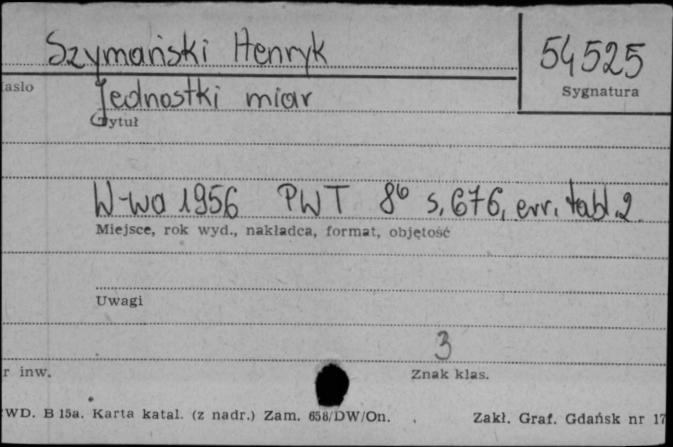 Szymański Henryk
54525
asło
Sygnatura
Jednostki miar
Tytuł
W-wa 1956 PWT 8° s. 676, err. tabl. 2.
Miejsce, rok wyd., nakładca, format, objętość
Uwagi
3
r inw.
Znak klas.
WD. B 15a. Karta katal. (z nadr.) Zam. 658/DW/On.
Zakł. Graf. Gdańsk nr 17